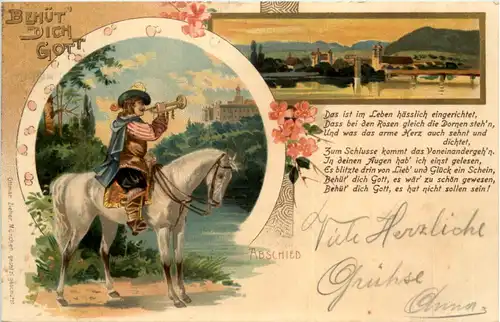 BEHÜT'
DICH
GOTT
Das ist im Leben hässlich eingerichtet,
Dass bei den Rosen gleich die Dornen steh'n,
Und was das arme Herz auch sehnt und
dichtet,
Zum Schlusse kommt das Voneinandergeh'n.
In deinen Augen hab' ich einst gelesen,
Es blitzte drin von Lieb' und Glück ein Schein,
Behüt' dich Gott, es wär' zu schön gewesen,
Behüt' dich Gott, es hat nicht sollen sein!
ABSCHIED
Ottmar Zieher München gesetzl. geschützt
Herzliche
Grühse
Anna.